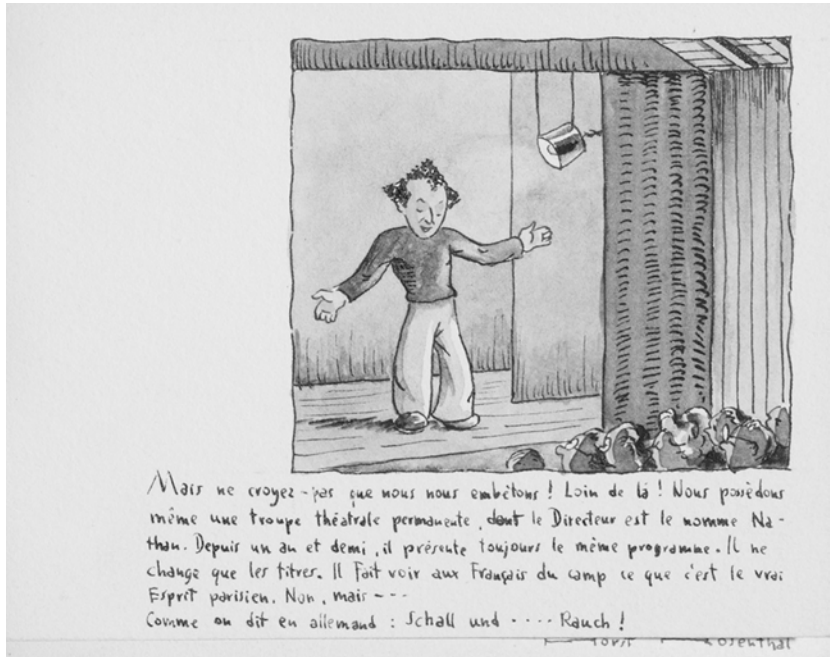 Mais ne croyez-pas que nous nous embêtons ! Loin de là ! Nous possèdons
même une troupe théatrale permanente, dont le Directeur est le nomme Na-
than. Depuis un an et demi, il présente toujours le même programme. Il ne
change que les titres. Il fait voir aux Français du camp ce que c'est le vrai
Esprit parisien. Non, mais ---
Comme on dit en allemand : Schall und .... Rauch !
Horst Rosenthal